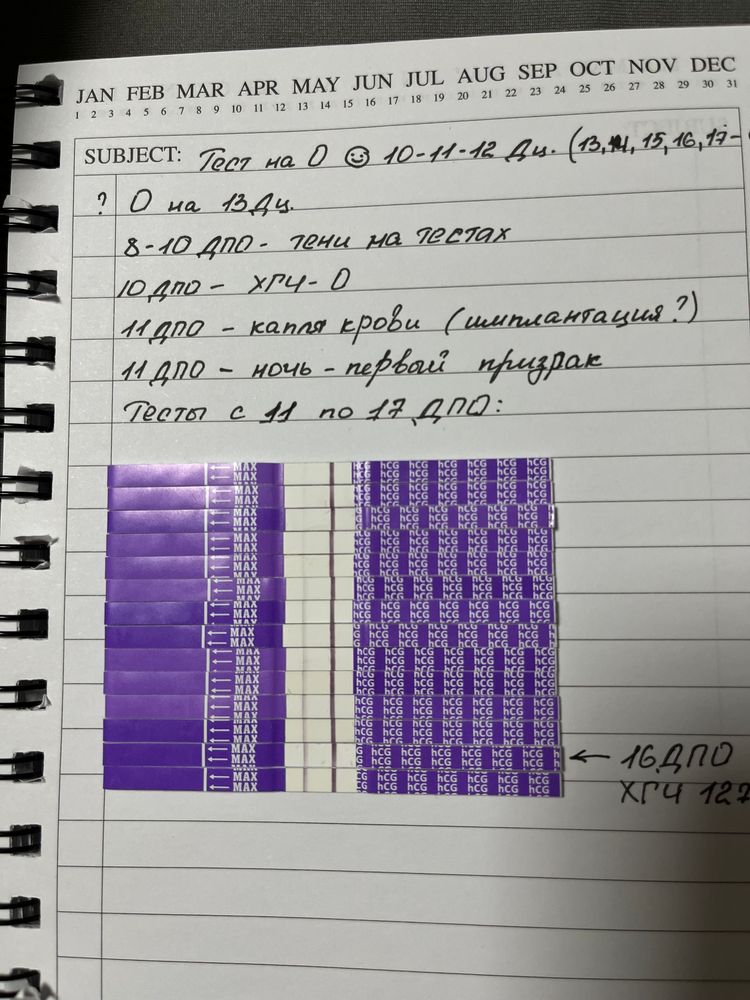 JAN FEB MAR APR MAY JUN JUL AUG SEP OCT NOV DEC
1 2 3 4 5 6 7 8 9 10 11 12 13 14 15 16 17 18 19 20 21 22 23 24 25 26 27 28 29 30 31
SUBJECT: Тест на О ☺ 10-11-12 Дц. (13, 14, 15, 16, 17-
? О на 13 Дц.
8-10 ДПО - тени на тестах
10 ДПО - ХГЧ - 0
11 ДПО - капля крови (имплантация?)
11 ДПО - ночь - первый призрак
Тесты с 11 по 17 ДПО:
MAX hCG hCG hCG hCG hCG hCG
← 16 ДПО
ХГЧ 127